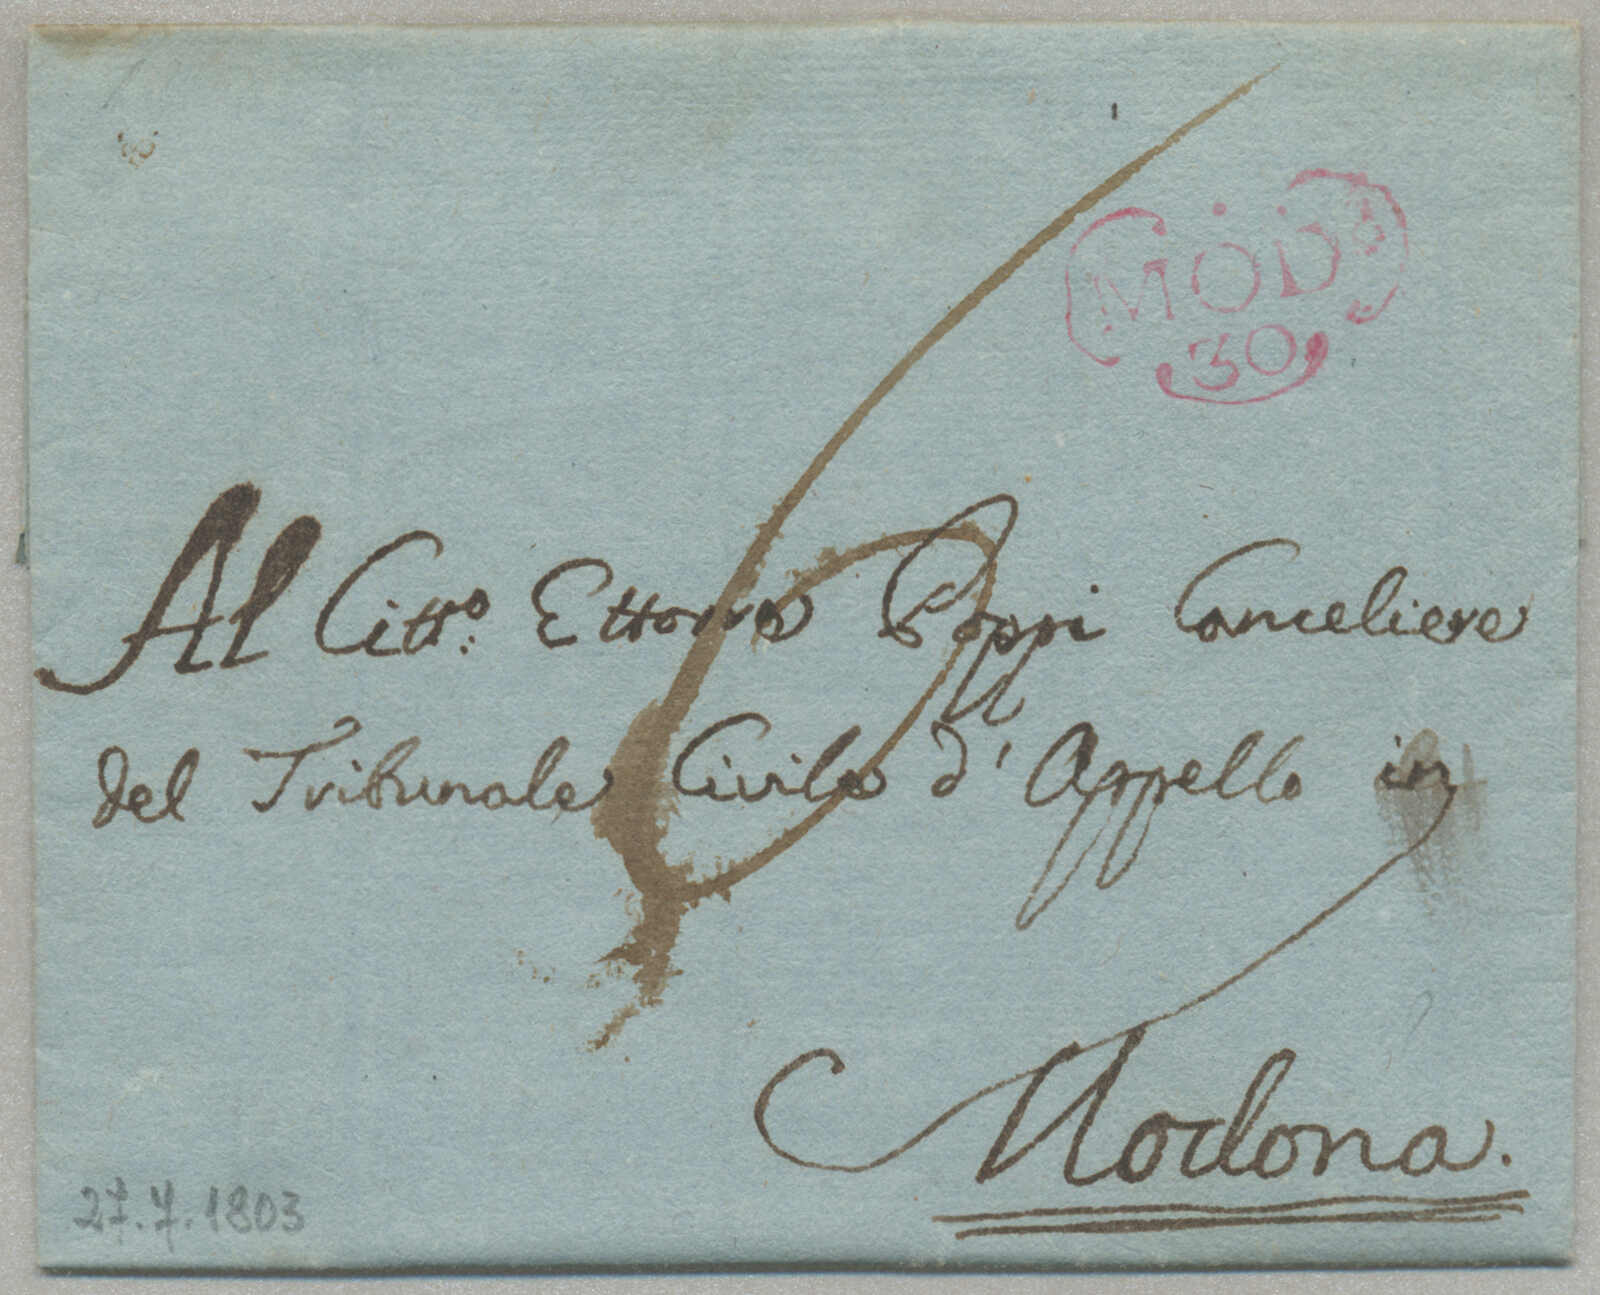 MOD.
30
Al Citt.º Ettore Poppi Canceliere
del Tribunale Civile d'Appello in
Modona.
27.7.1803